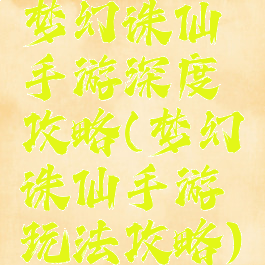 梦幻诛仙
手游深度
攻略(梦幻
诛仙手游
玩法攻略)